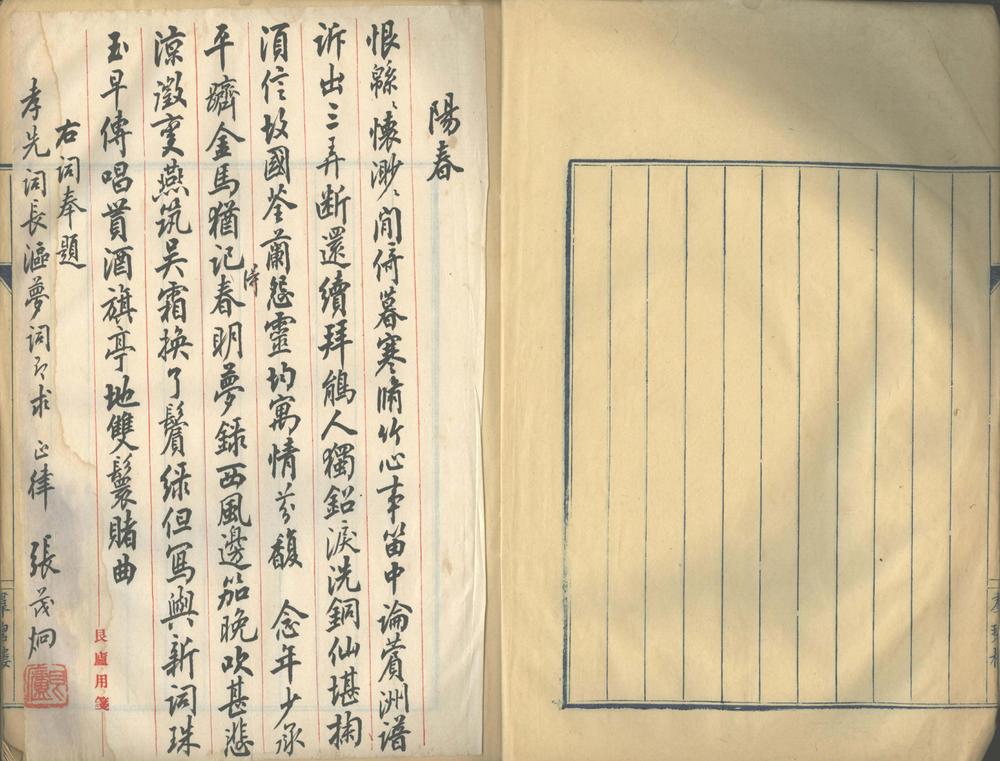 陽春
恨緜〻懷渺〻閒倚暮寒脩竹心本笛中論薲洲譜
訴出三弄断還續拜鵑人獨鉛淚洗銅仙堪掬
須信故國荃蘭怨靈均寓情芬馥　念年少承
平躋金馬猶記春明夢錄西風邊笳晚吹甚悲
涼激變燕筑吴霜換了鬢绿但寫與新詞珠
玉早傳唱貰酒旗亭地雙鬟賭曲
右词奉題
孝先词長漚夢词即求 正律 張茂炯
艮廬用箋
艮廬
羣碧樓